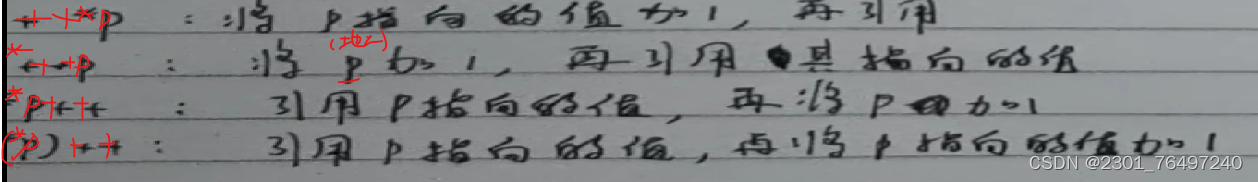 ++*p : 将 p 指向的值加1, 再引用
(地址)
*++p : 将 p 加1, 再引用其指向的值
*p++ : 引用 p 指向的值, 再将 p 加1
(*p)++ : 引用 p 指向的值, 再将 p 指向的值加1
CSDN @2301_76497240